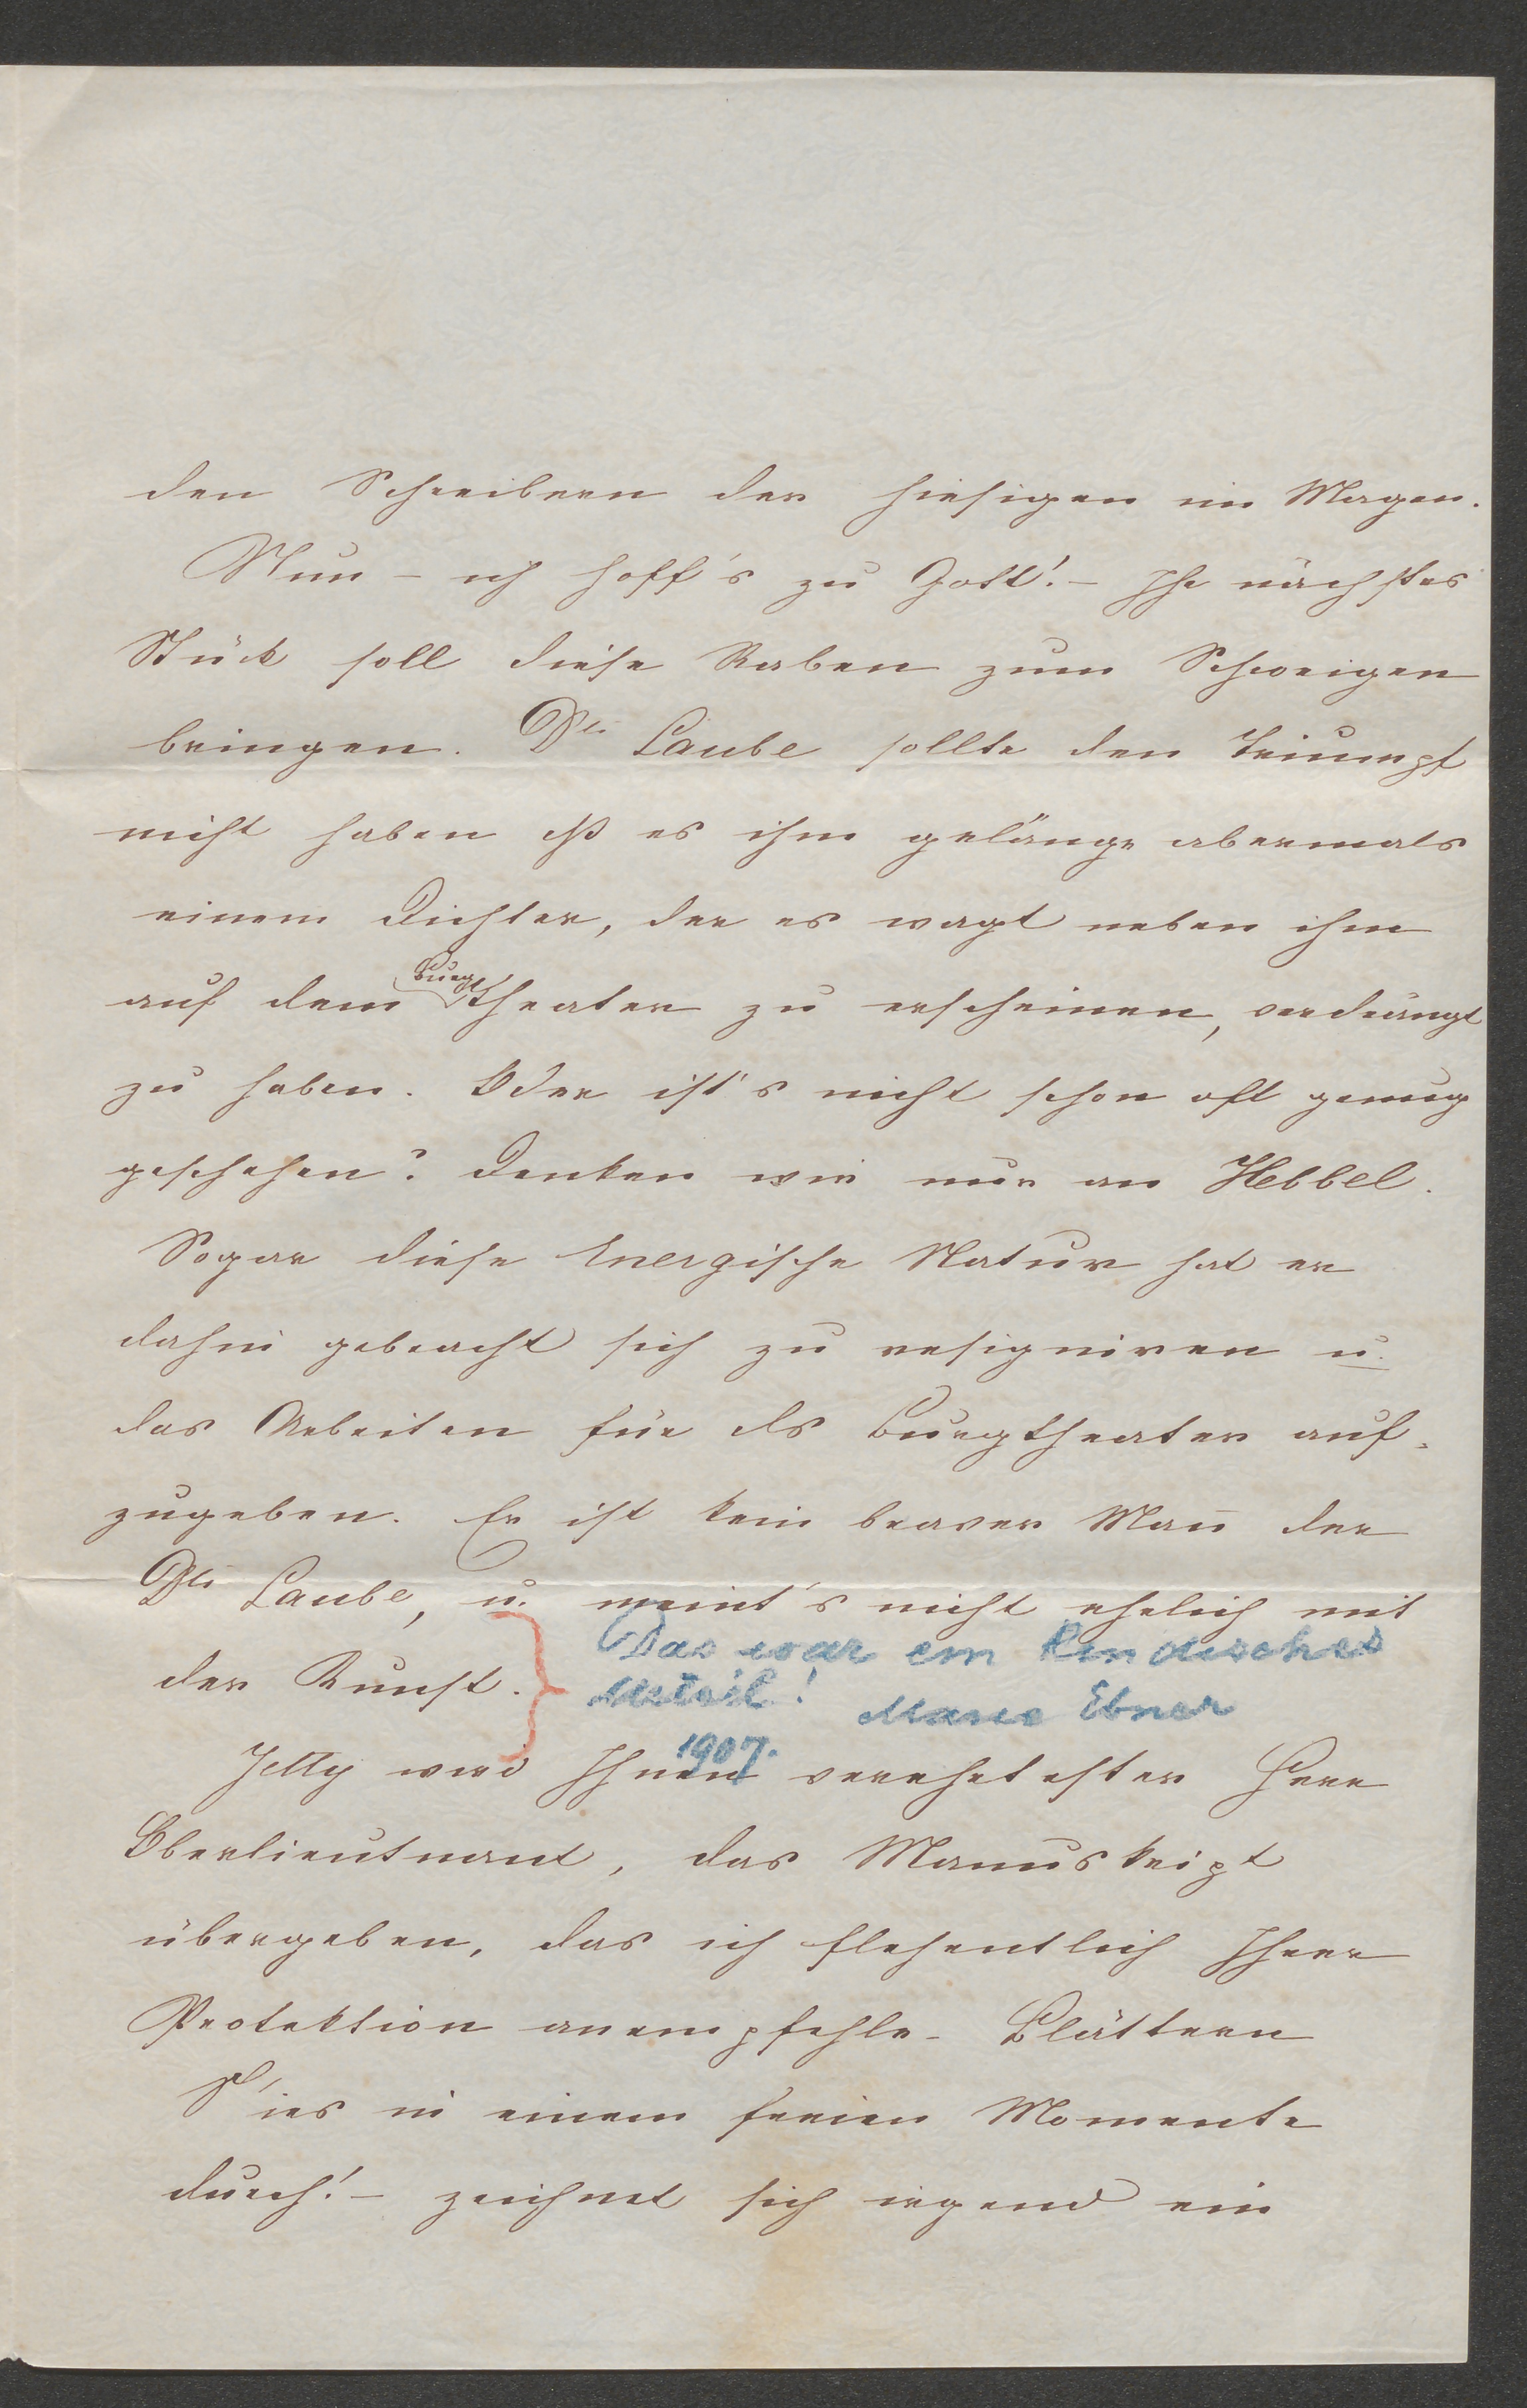 den Schreibern der hiesigen im Magen.
Nun – ich hoff's zu Gott! – Ihr nächstes
Stück soll diese Raben zum Schweigen
bringen. Dr Laube sollte den Triumpf
nicht haben dß es ihm gelänge abermals
einem Dichter, der es wagt neben ihm
auf dem Burgtheater zu erscheinen, verdrängt
zu haben. Oder ist's nicht schon oft genug
geschehen? Denken wir nur an Hebbel.
Sogar diese energische Natur hat er
dahin gebracht sich zu resigniren u.
das Arbeiten für ds Burgtheater auf-
zugeben. Er ist kein braver Mañ der
Dr Laube, u. meint's nicht ehrlich mit
der Kunst.
Das war ein kindisches
Urteil! Marie Ebner
1907.
Jetty wird Ihnen verehrtester Herr
Oberlieutnant, das Manuskript
übergeben, das ich flehentlich Ihrer
Protektion anempfehle – Blättern
S'ies in einem freien Momente
durch! – zeichnet sich irgend ein